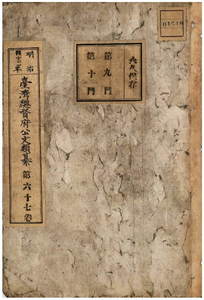 永久保存
第九門
第十門
明治
臺灣總督府公文類纂
第六十七卷